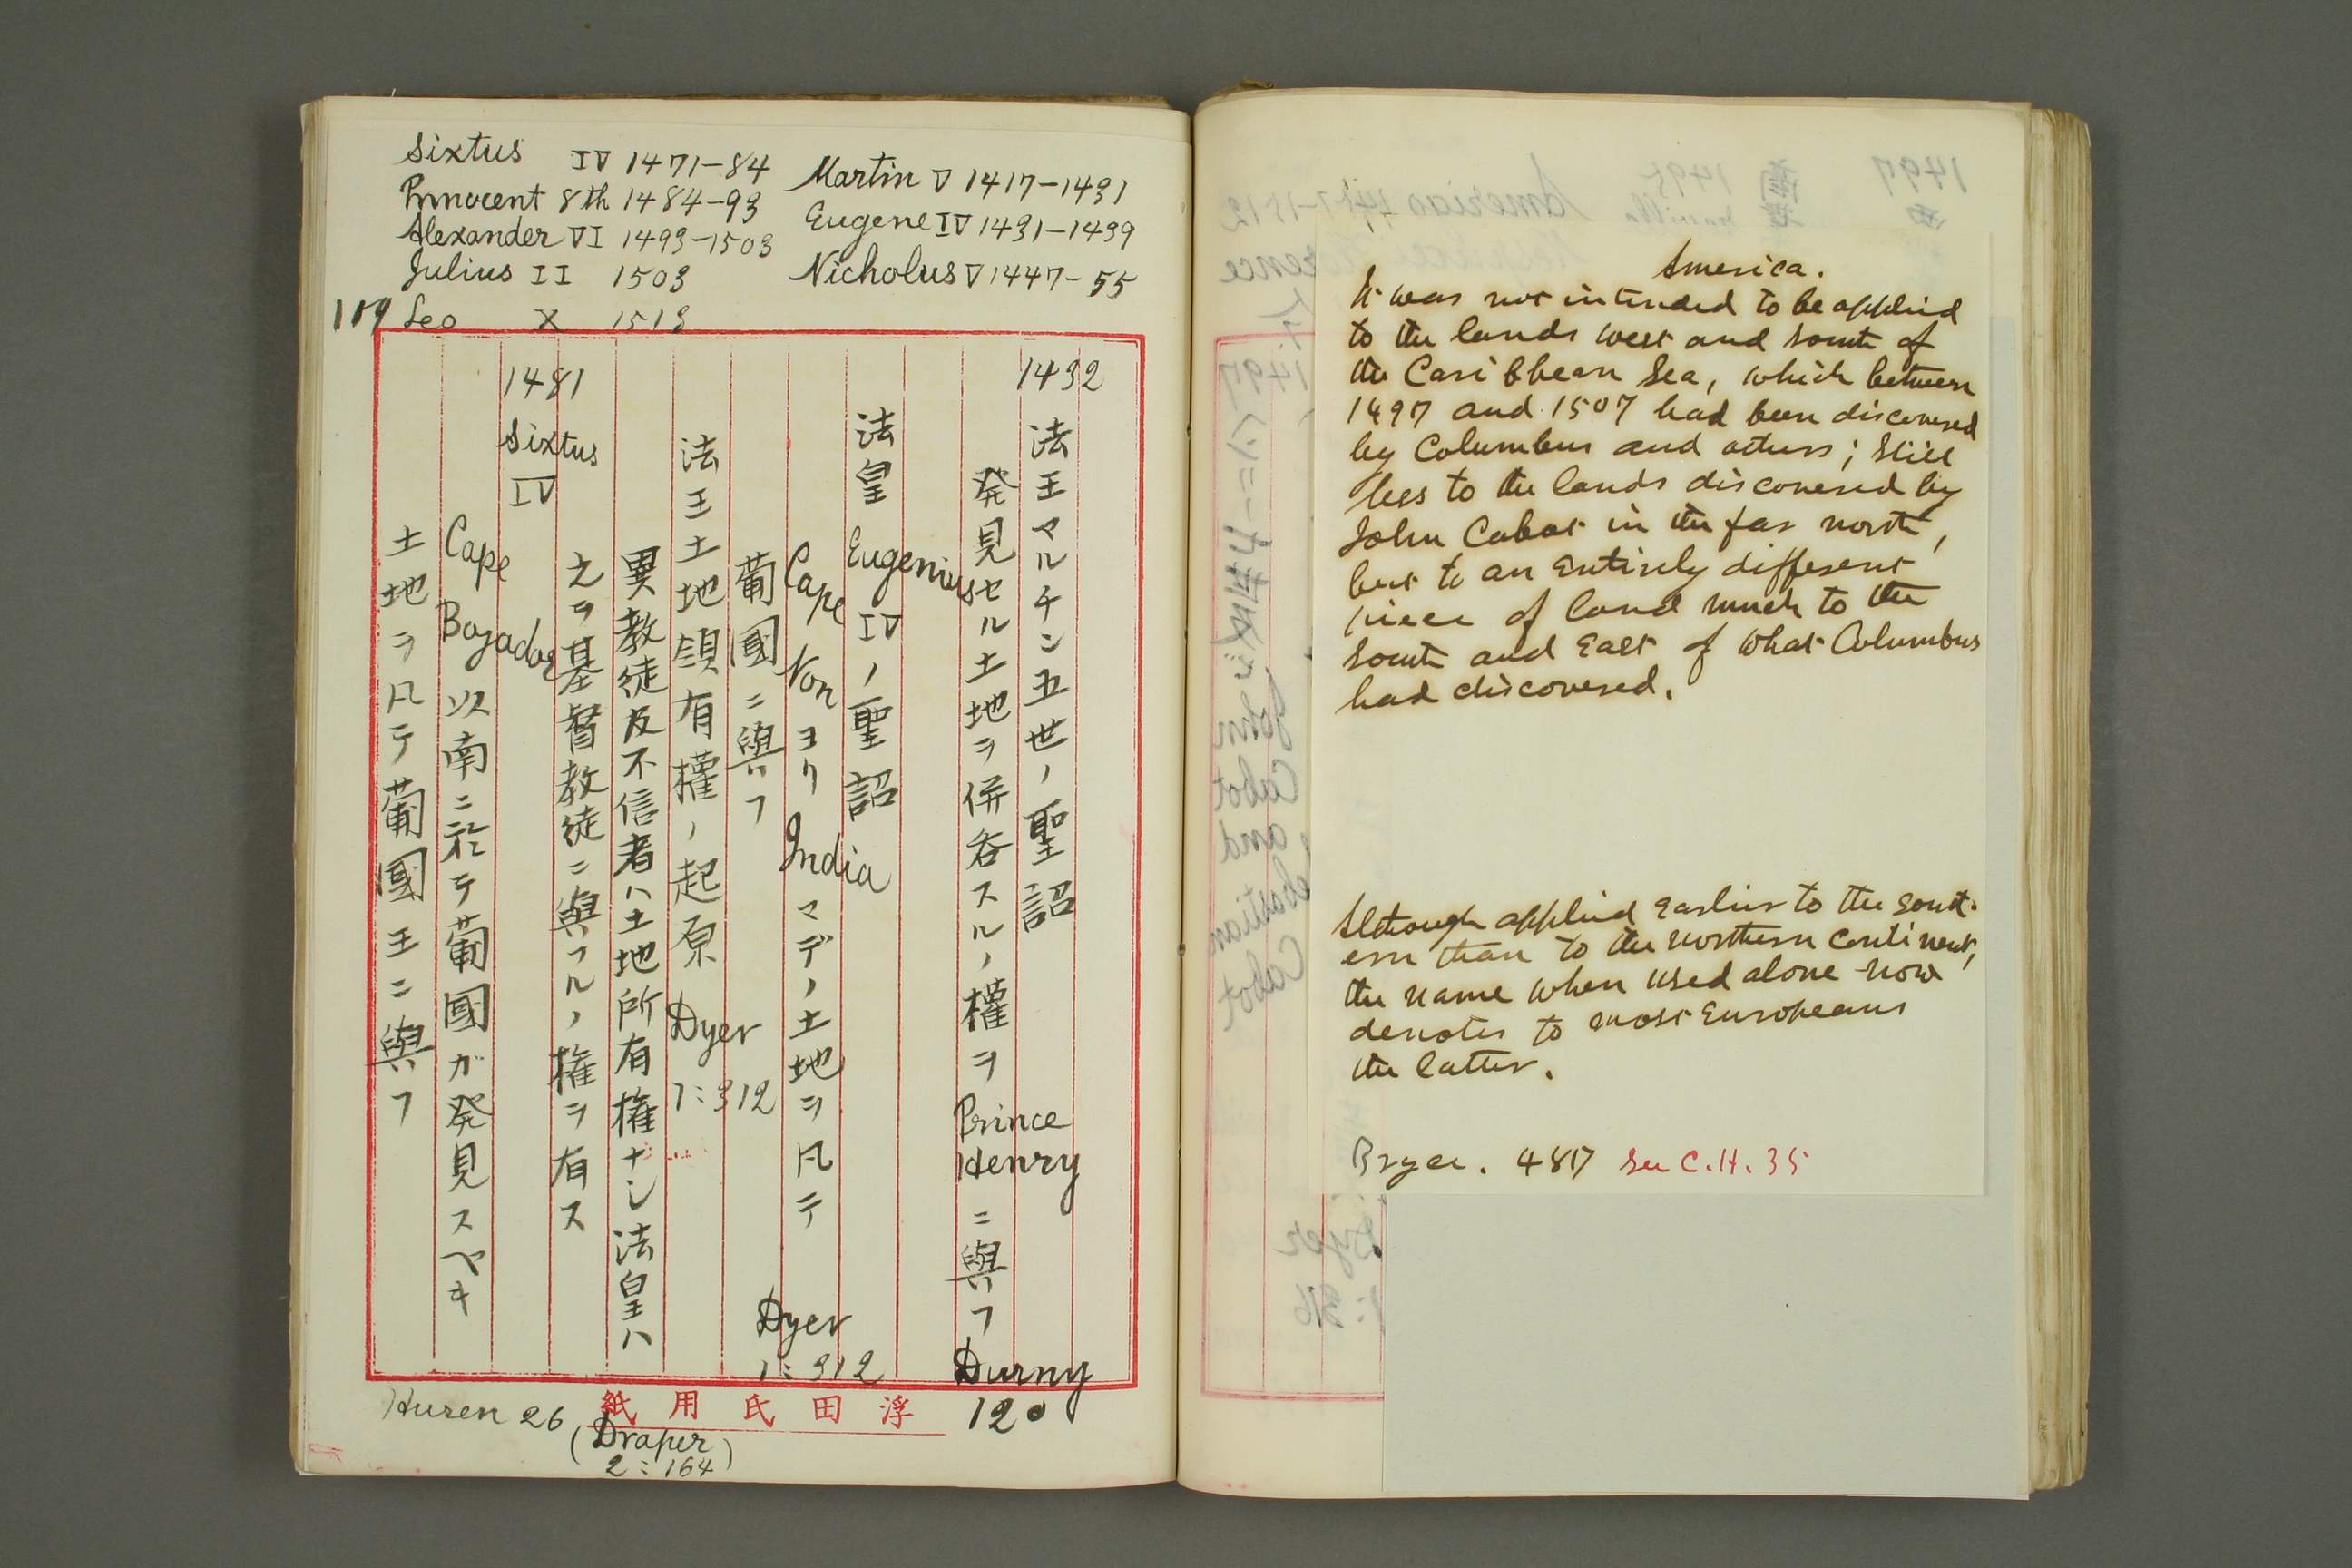 Sixtus IV 1471-84
Innocent 8th 1484-93
Alexander VI 1493-1503
Julius II 1503
119 Leo X 1513
Martin V 1417-1431
Eugene IV 1431-1439
Nicholus V 1447-55
1432 法王マルチン五世ノ聖詔
発見セル土地ヲ併呑スルノ權ヲ Prince Henry ニ與フ Durny 120
法皇 Eugenius IV ノ聖詔
Cape Non ヨリ India マデノ土地ヲ凡テ
葡國ニ與フ Dyer 1:312
法王土地領有權ノ起原 Dyer 1:312
異教徒及不信者ハ土地所有権ナシ法皇ハ
之ヲ基督教徒ニ與フルノ権ヲ有ス
1481 Sixtus IV
Cape Bojador 以南ニ於テ葡國ガ発見スベキ
土地ヲ凡テ葡國王ニ與フ
26
(Draper 2:164)
浮田氏用紙
America.
It was not intended to be applied
to the lands west and south of
the Caribbean Sea, which between
1497 and 1507 had been discovered
by Columbus and others; still
less to the lands discovered by
John Cabot in the far north,
but to an entirely different
piece of land much to the
south and east of what Columbus
had discovered.
Although applied earlier to the south-
ern than to the northern continent,
the name when used alone now
denotes to most Europeans
the latter.
Bryce. 487 See C.H. 35